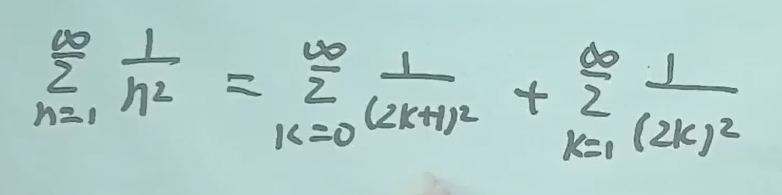 $\sum_{n=1}^{\infty} \frac{1}{n^2} = \sum_{k=0}^{\infty} \frac{1}{(2k+1)^2} + \sum_{k=1}^{\infty} \frac{1}{(2k)^2}$